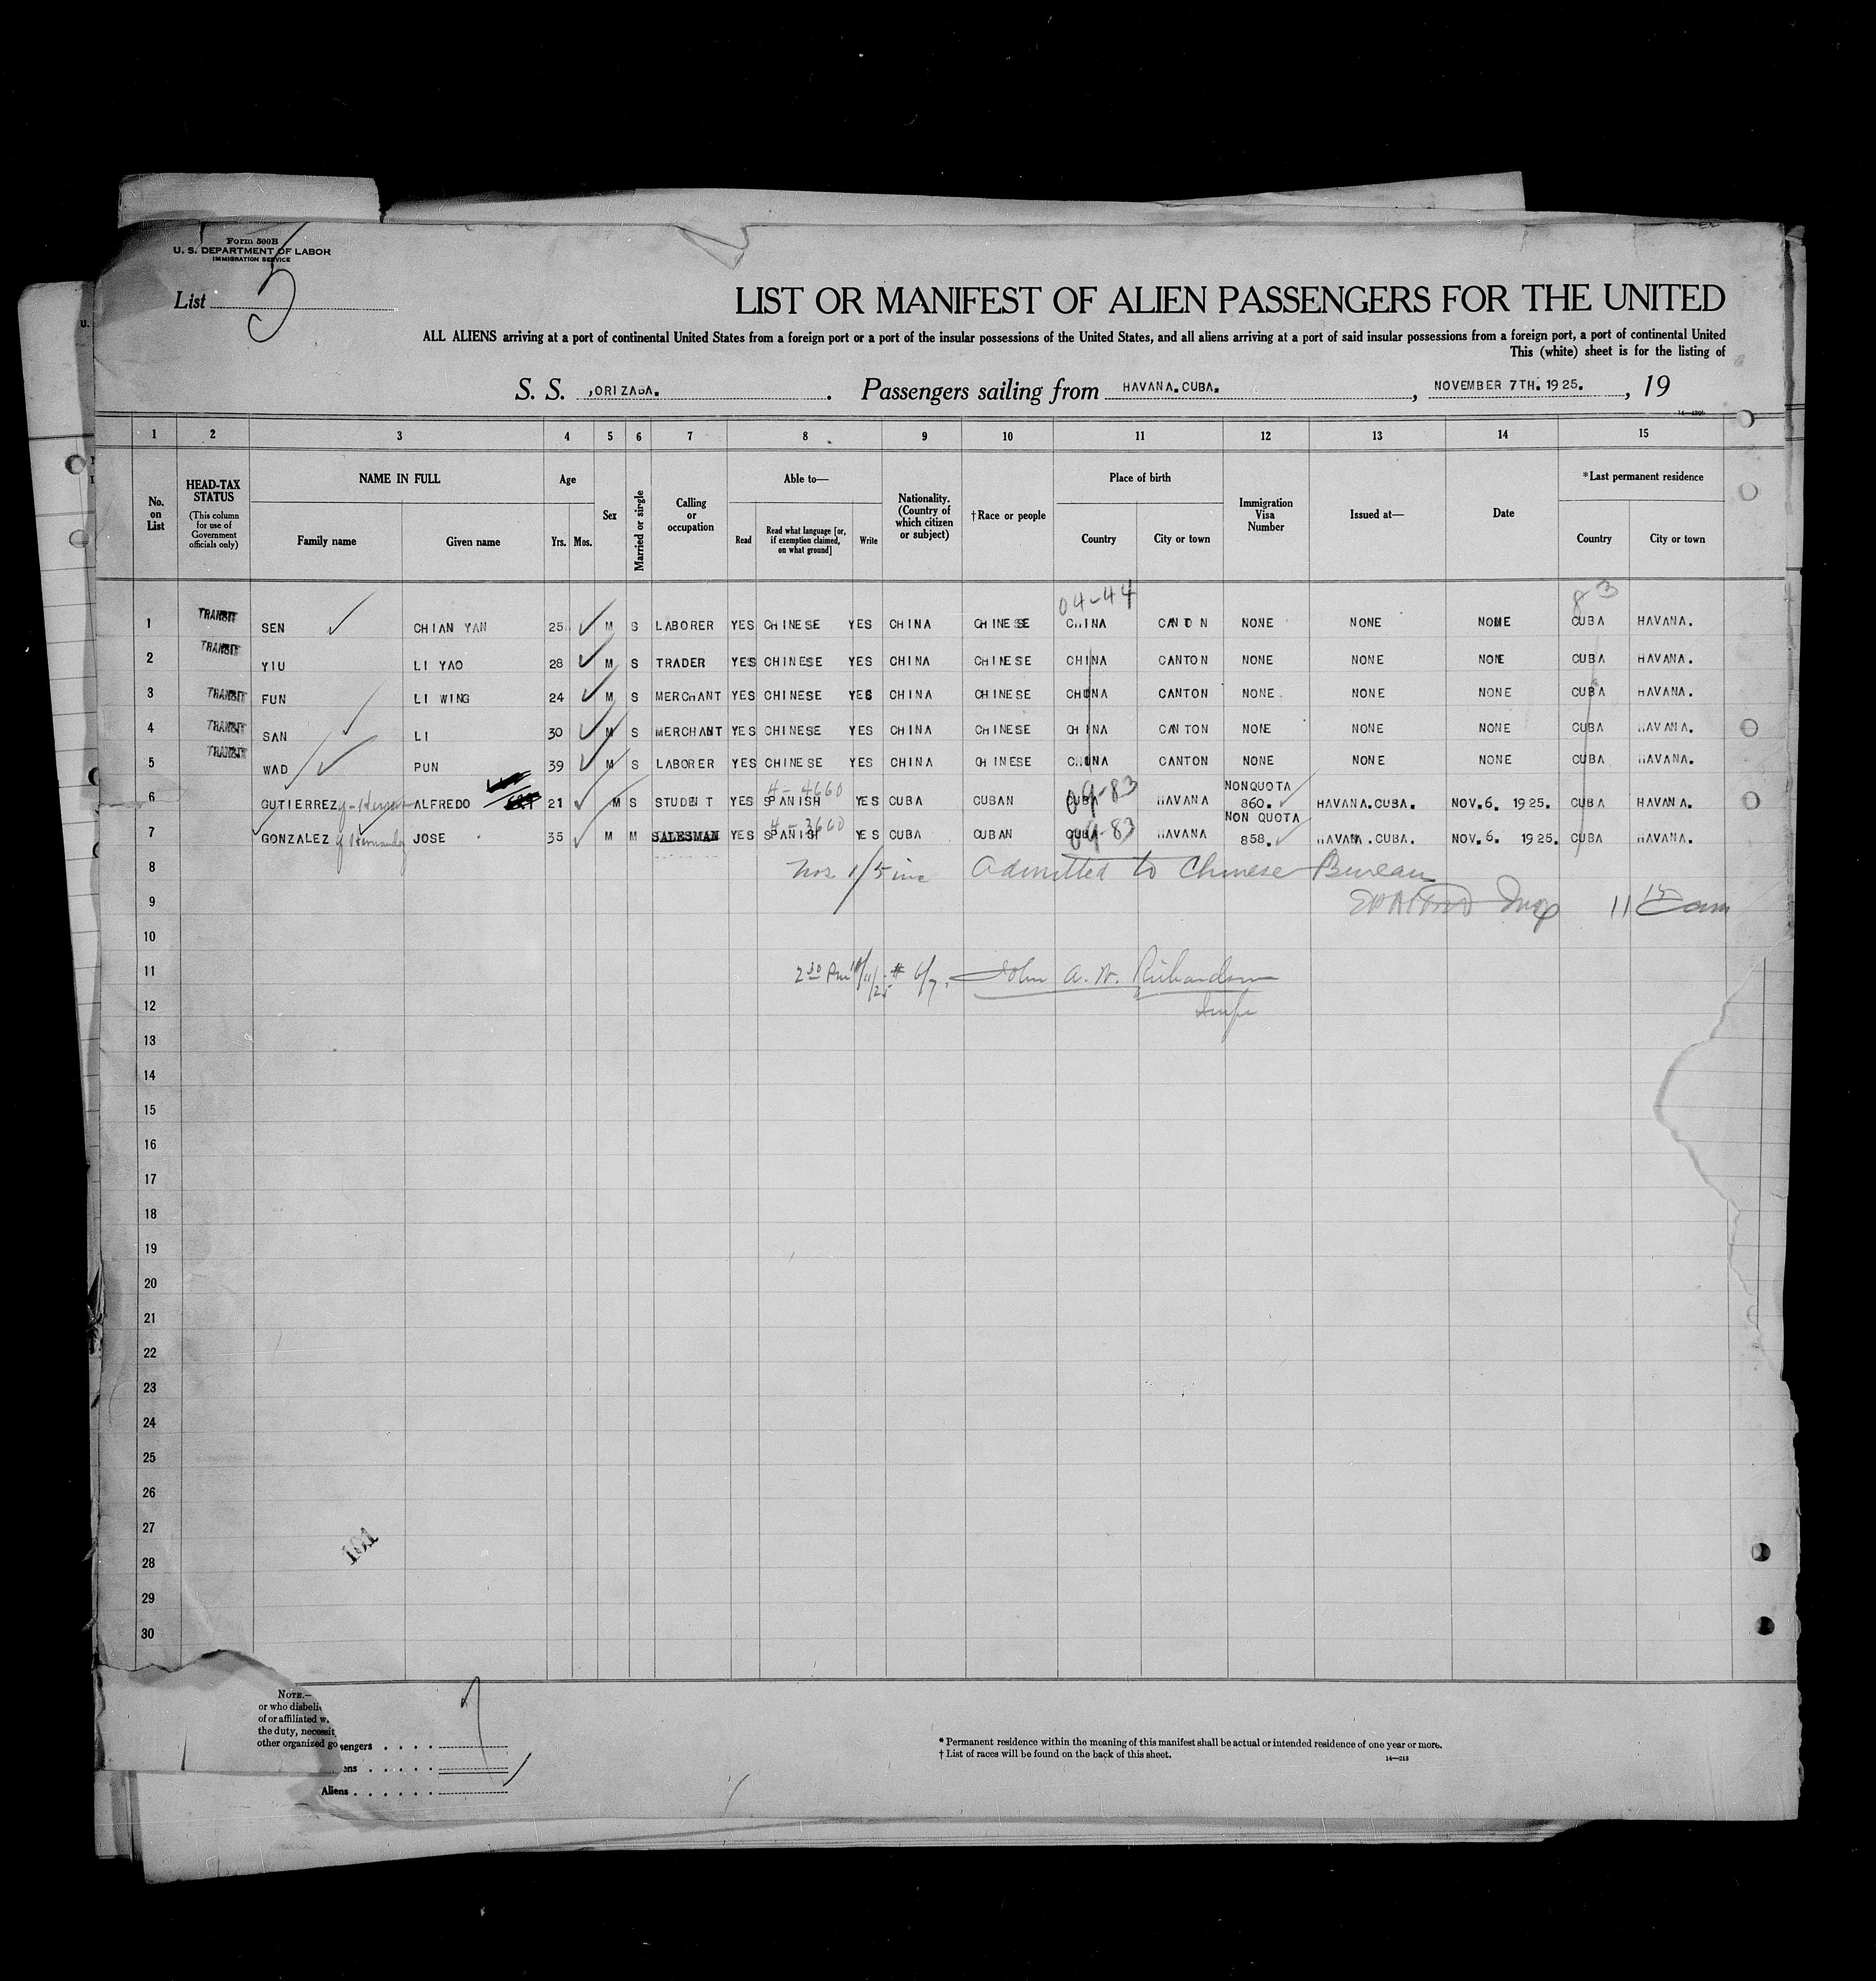 Form 500B
U. S. DEPARTMENT OF LABOR
IMMIGRATION SERVICE
List 5
LIST OR MANIFEST OF ALIEN PASSENGERS FOR THE UNITED
ALL ALIENS arriving at a port of continental United States from a foreign port or a port of the insular possessions of the United States, and all aliens arriving at a port of said insular possessions from a foreign port, a port of continental United
This (white) sheet is for the listing of
S. S. ORIZABA. Passengers sailing from HAVANA.CUBA. , NOVEMBER 7TH. 1925. , 19
1 2 3 4 5 6 7 8 9 10 11 12 13 14 15
No. on List
HEAD-TAX STATUS
(This column for use of Government officials only)
NAME IN FULL
Family name Given name
Age
Yrs. Mos.
Sex
Married or single
Calling or occupation
Able to—
Read Read what language [or, if exemption claimed, on what ground] Write
Nationality. (Country of which citizen or subject)
†Race or people
Place of birth
Country City or town
Immigration Visa Number
Issued at—
Date
*Last permanent residence
Country City or town
04-44 83
1 TRANSIT SEN CHIAN YAN 25 M S LABORER YES CHINESE YES CHINA CHINESE CHINA CANTON NONE NONE NONE CUBA HAVANA.
2 TRANSIT YIU LI YAO 28 M S TRADER YES CHINESE YES CHINA CHINESE CHINA CANTON NONE NONE NONE CUBA HAVANA.
3 TRANSIT FUN LI WING 24 M S MERCHANT YES CHINESE YES CHINA CHINESE CHUNA CANTON NONE NONE NONE CUBA HAVANA.
4 TRANSIT SAN LI 30 M S MERCHANT YES CHINESE YES CHINA CHINESE CHINA CANTON NONE NONE NONE CUBA HAVANA.
5 TRANSIT WAD PUN 39 M S LABORER YES CHINESE YES CHINA CHINESE CHUNA CANTON NONE NONE NONE CUBA HAVANA.
4-4660 09-83 NONQUOTA
6 GUTIERREZ y ALFREDO 21 M S STUDENT YES SPANISH YES CUBA CUBAN CUBA HAVANA 860. HAVANA.CUBA. NOV.6. 1925. CUBA HAVANA.
4-3660 09-83 NON QUOTA
7 GONZALEZ y Hernandez JOSE 35 M M SALESMAN YES SPANISH YES CUBA CUBAN CUBA HAVANA 858. HAVANA.CUBA. NOV.6. 1925. CUBA HAVANA.
8 Nos 1/5 inc Admitted to Chinese Bureau
9 Insp 11 15 am
10
11 2 30 Pm 11/25 # 6/7. John A. W. Richardson
12 Insp
13
14
15
16
17
18
19
20
21
22
23
24
25
26
27
101
28
29
30
NOTE.—
or who disbeli
of or affiliated w
the duty, necessit
other organized go
sengers . . . . 7
ens . . . . .
Aliens . . . . . .
* Permanent residence within the meaning of this manifest shall be actual or intended residence of one year or more.
† List of races will be found on the back of this sheet.
14—213